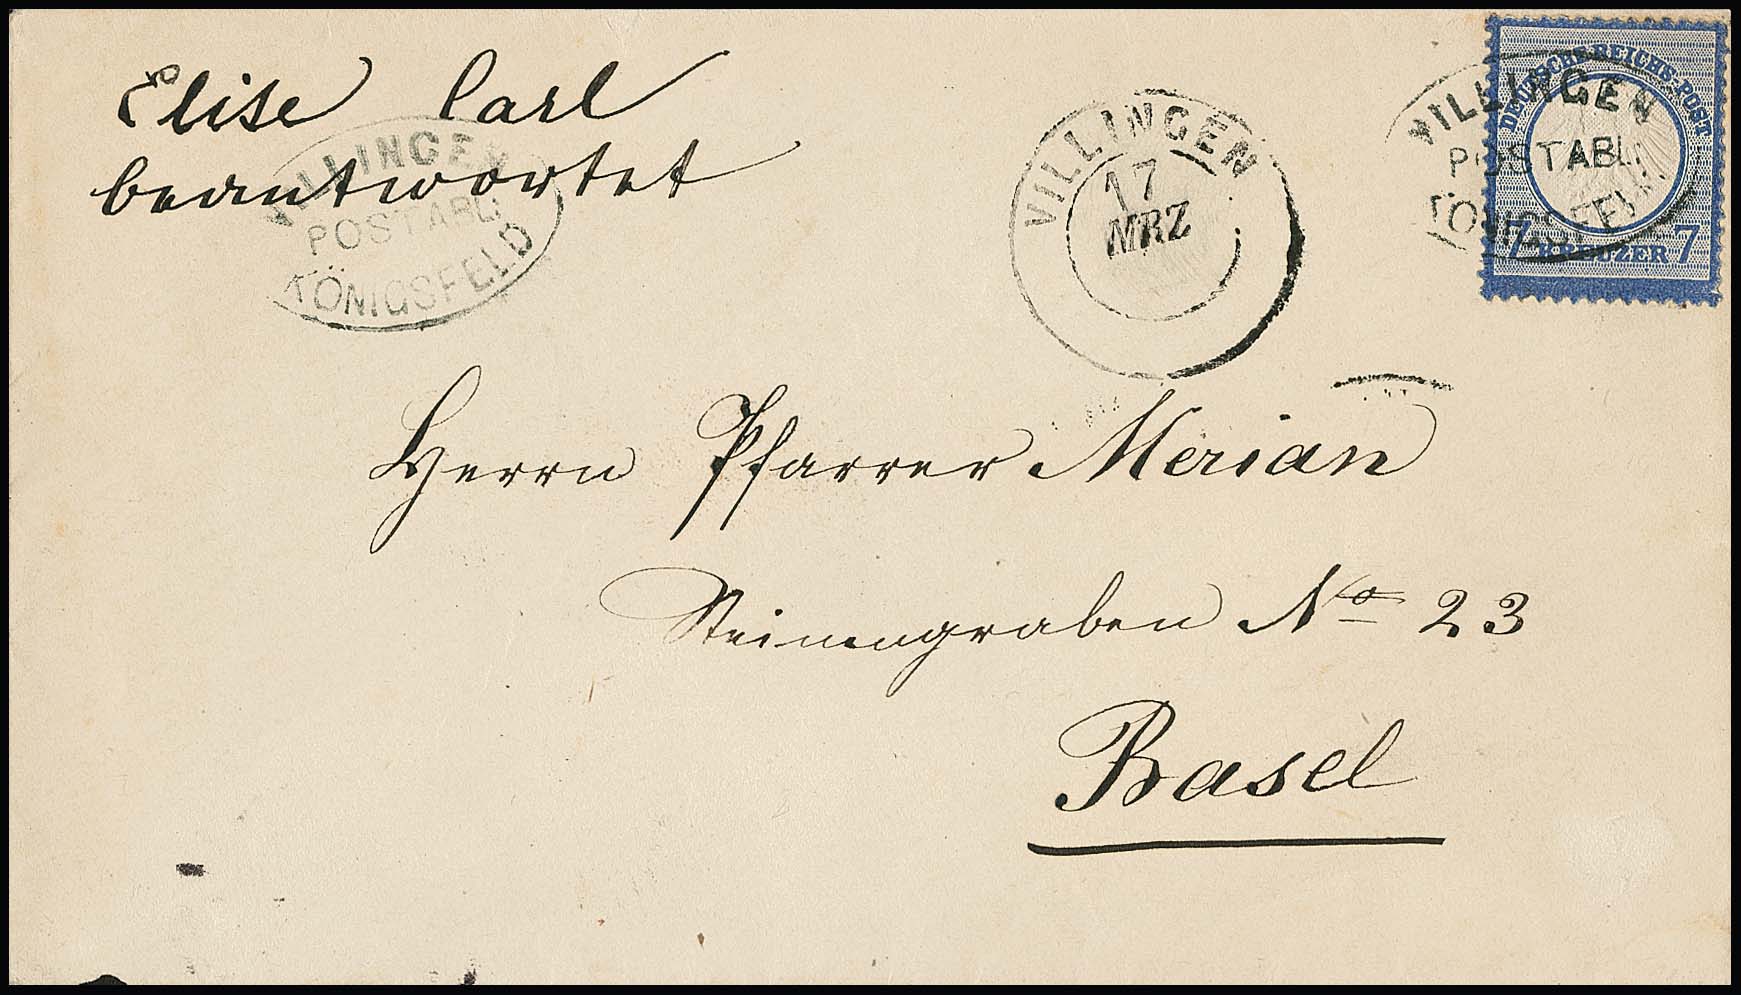 Elise Carl
beantwortet
VILLINGEN
POSTABL:
KÖNIGSFELD
VILLINGEN
17
MRZ
DEUTSCHE REICHS-POST
7 KREUZER 7
VILLINGEN
POSTABL:
KÖNIGSFELD
Herrn Pfarrer Merian
Steinengraben No 23
Basel